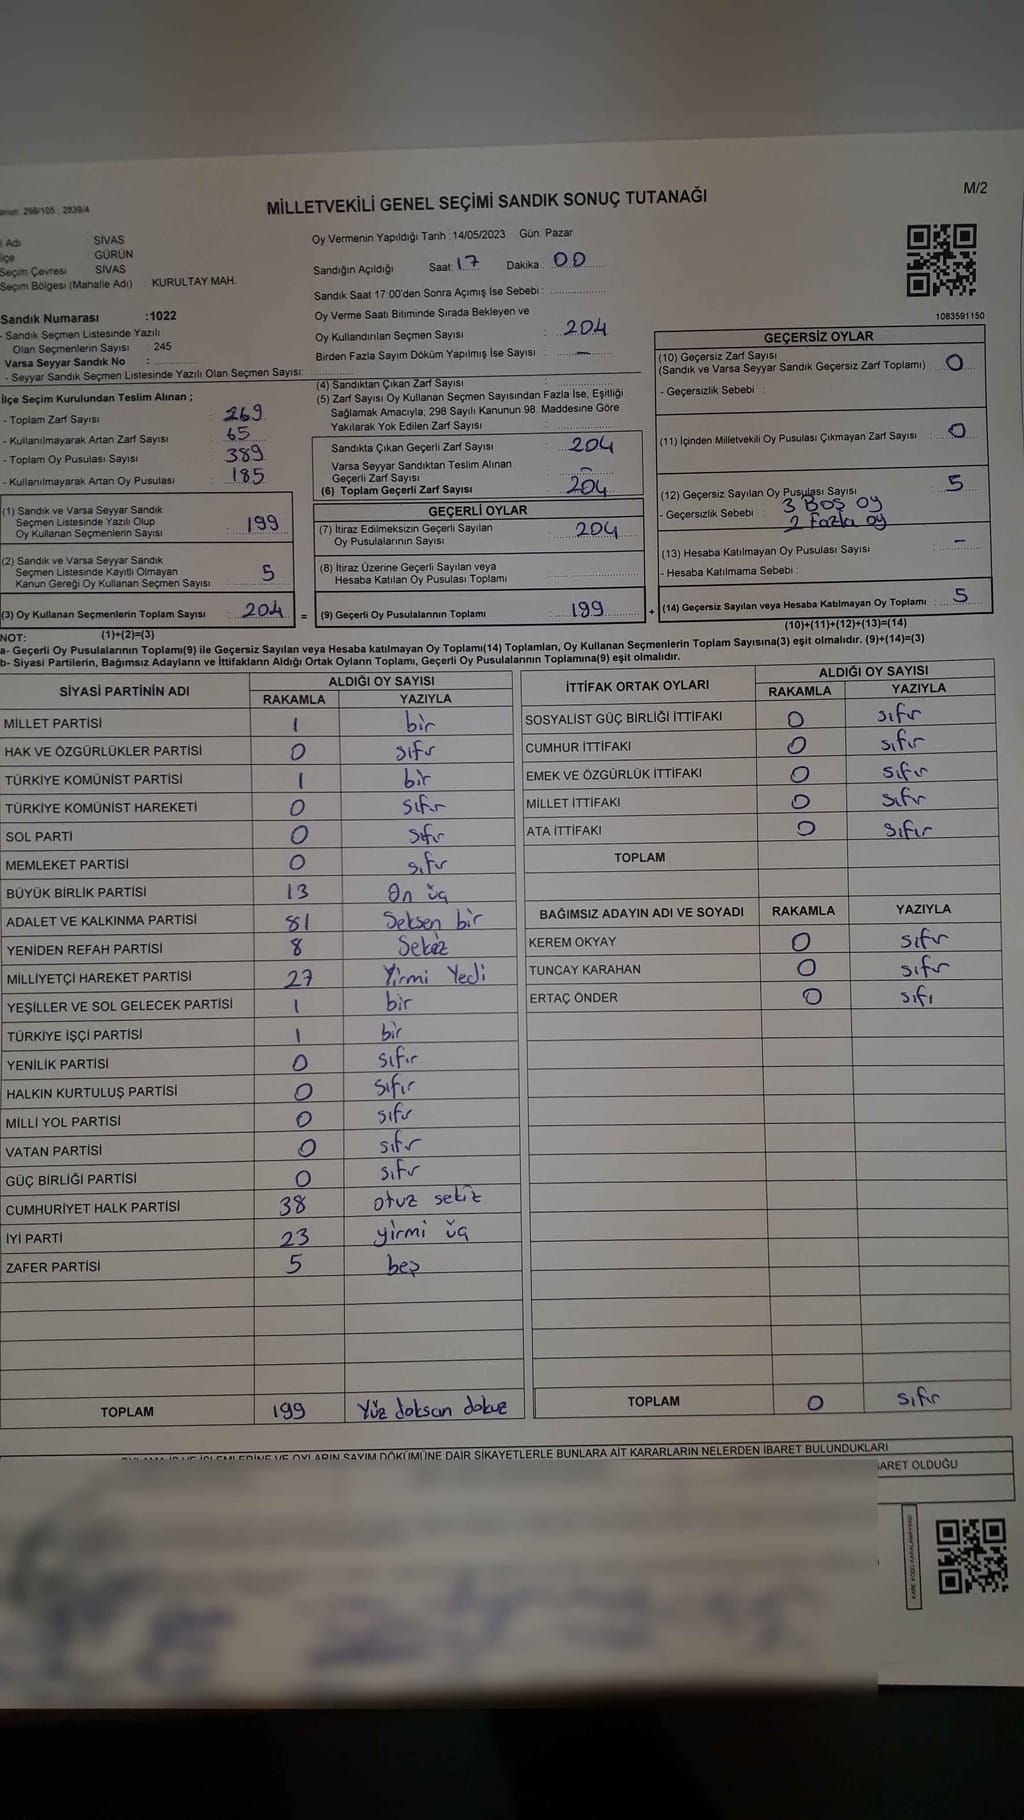 M/2
298/105 , 2839/4
MİLLETVEKİLİ GENEL SEÇİMİ SANDIK SONUÇ TUTANAĞI
Adı SİVAS
GÜRÜN
Seçim Çevresi SİVAS
Seçim Bölgesi (Mahalle Adı) : KURULTAY MAH.
Sandık Numarası :1022
- Sandık Seçmen Listesinde Yazılı
Olan Seçmenlerin Sayısı : 245
Varsa Seyyar Sandık No :
- Seyyar Sandık Seçmen Listesinde Yazılı Olan Seçmen Sayısı:
Oy Vermenin Yapıldığı Tarih :14/05/2023 Gün: Pazar
Sandığın Açıldığı Saat: 17 Dakika : 00
Sandık Saat 17:00'den Sonra Açımış İse Sebebi :
Oy Verme Saati Bitiminde Sırada Bekleyen ve
Oy Kullandırılan Seçmen Sayısı : 204
Birden Fazla Sayım Döküm Yapılmış İse Sayısı : -
1083591150
İlçe Seçim Kurulundan Teslim Alınan ;
- Toplam Zarf Sayısı : 269
- Kullanılmayarak Artan Zarf Sayısı : 65
- Toplam Oy Pusulası Sayısı : 389
- Kullanılmayarak Artan Oy Pusulası : 185
(1) Sandık ve Varsa Seyyar Sandık
Seçmen Listesinde Yazılı Olup
Oy Kullanan Seçmenlerin Sayısı : 199
(2) Sandık ve Varsa Seyyar Sandık
Seçmen Listesinde Kayıtlı Olmayan
Kanun Gereği Oy Kullanan Seçmen Sayısı : 5
(3) Oy Kullanan Seçmenlerin Toplam Sayısı : 204 =
(4) Sandıktan Çıkan Zarf Sayısı :
(5) Zarf Sayısı Oy Kullanan Seçmen Sayısından Fazla İse, Eşitliği
Sağlamak Amacıyla; 298 Sayılı Kanunun 98. Maddesine Göre
Yakılarak Yok Edilen Zarf Sayısı :
Sandıkta Çıkan Geçerli Zarf Sayısı : 204
Varsa Seyyar Sandıktan Teslim Alınan
Geçerli Zarf Sayısı : -
(6) Toplam Geçerli Zarf Sayısı : 204
GEÇERLİ OYLAR
(7) İtiraz Edilmeksizin Geçerli Sayılan
Oy Pusulalarının Sayısı : 204
(8) İtiraz Üzerine Geçerli Sayılan veya
Hesaba Katılan Oy Pusulası Toplamı :
(9) Geçerli Oy Pusulalarının Toplamı : 199 +
GEÇERSİZ OYLAR
(10) Geçersiz Zarf Sayısı
(Sandık ve Varsa Seyyar Sandık Geçersiz Zarf Toplamı) : 0
- Geçersizlik Sebebi :
(11) İçinden Milletvekili Oy Pusulası Çıkmayan Zarf Sayısı : 0
(12) Geçersiz Sayılan Oy Pusulası Sayısı : 5
- Geçersizlik Sebebi : 3 Boş oy
2 Fazla oy
(13) Hesaba Katılmayan Oy Pusulası Sayısı : -
- Hesaba Katılmama Sebebi :
(14) Geçersiz Sayılan veya Hesaba Katılmayan Oy Toplamı : 5
NOT: (1)+(2)=(3) (10)+(11)+(12)+(13)=(14)
a- Geçerli Oy Pusulalarının Toplamı(9) ile Geçersiz Sayılan veya Hesaba katılmayan Oy Toplamı(14) Toplamları, Oy Kullanan Seçmenlerin Toplam Sayısına(3) eşit olmalıdır. (9)+(14)=(3)
b- Siyasi Partilerin, Bağımsız Adayların ve İttifakların Aldığı Ortak Oyların Toplamı, Geçerli Oy Pusulalarının Toplamına(9) eşit olmalıdır.
SİYASİ PARTİNİN ADI ALDIĞI OY SAYISI
RAKAMLA YAZIYLA
MİLLET PARTİSİ 1 bir
HAK VE ÖZGÜRLÜKLER PARTİSİ 0 sıfır
TÜRKİYE KOMÜNİST PARTİSİ 1 bir
TÜRKİYE KOMÜNİST HAREKETİ 0 sıfır
SOL PARTİ 0 sıfır
MEMLEKET PARTİSİ 0 sıfır
BÜYÜK BİRLİK PARTİSİ 13 On üç
ADALET VE KALKINMA PARTİSİ 81 Seksen bir
YENİDEN REFAH PARTİSİ 8 Sekiz
MİLLİYETÇİ HAREKET PARTİSİ 27 Yirmi Yedi
YEŞİLLER VE SOL GELECEK PARTİSİ 1 bir
TÜRKİYE İŞÇİ PARTİSİ 1 bir
YENİLİK PARTİSİ 0 sıfır
HALKIN KURTULUŞ PARTİSİ 0 sıfır
MİLLİ YOL PARTİSİ 0 sıfır
VATAN PARTİSİ 0 sıfır
GÜÇ BİRLİĞİ PARTİSİ 0 sıfır
CUMHURİYET HALK PARTİSİ 38 otuz sekiz
İYİ PARTİ 23 yirmi üç
ZAFER PARTİSİ 5 beş
TOPLAM 199 Yüz doksan dokuz
İTTİFAK ORTAK OYLARI ALDIĞI OY SAYISI
RAKAMLA YAZIYLA
SOSYALİST GÜÇ BİRLİĞİ İTTİFAKI 0 sıfır
CUMHUR İTTİFAKI 0 sıfır
EMEK VE ÖZGÜRLÜK İTTİFAKI 0 sıfır
MİLLET İTTİFAKI 0 sıfır
ATA İTTİFAKI 0 sıfır
TOPLAM
BAĞIMSIZ ADAYIN ADI VE SOYADI RAKAMLA YAZIYLA
KEREM OKYAY 0 sıfır
TUNCAY KARAHAN 0 sıfır
ERTAÇ ÖNDER 0 sıfı
TOPLAM 0 sıfır
OYLARIN SAYIM DÖKÜMÜNE DAİR ŞİKAYETLERLE BUNLARA AİT KARARLARIN NELERDEN İBARET BULUNDUKLARI
OLDUĞU